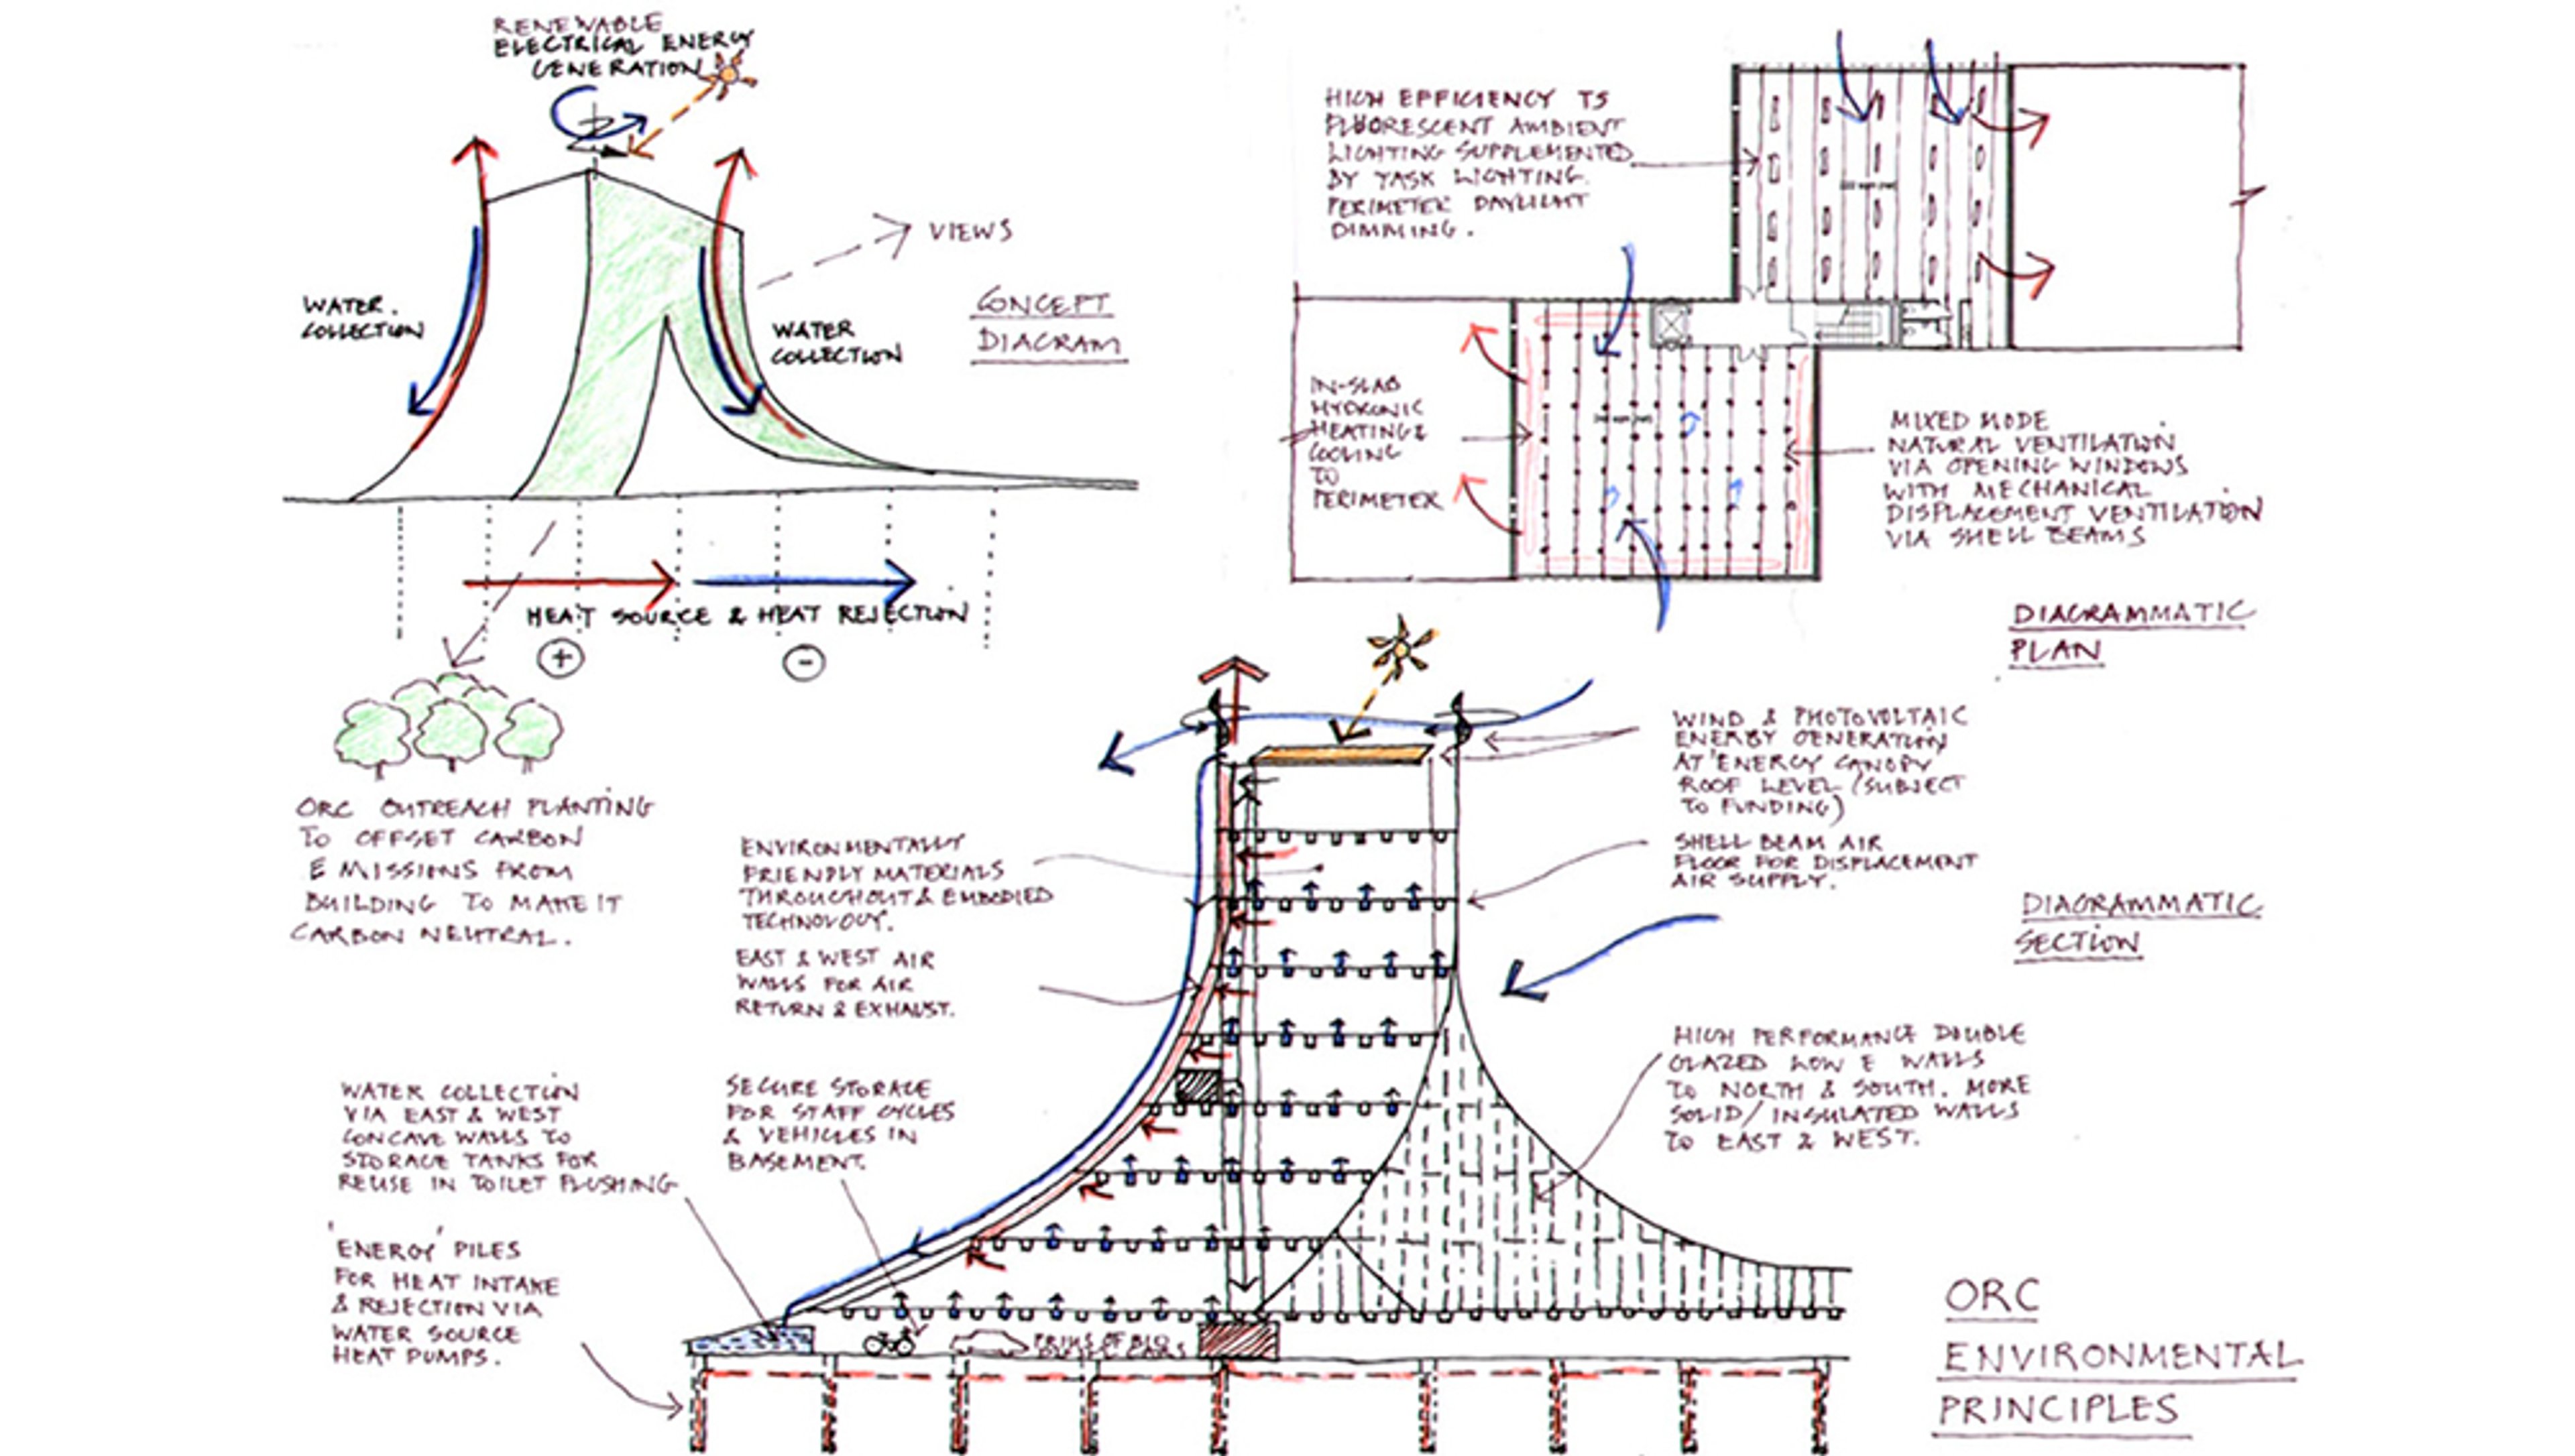 RENEWABLE
ELECTRICAL ENERGY
GENERATION
VIEWS
WATER.
COLLECTION
WATER
COLLECTION
CONCEPT
DIAGRAM
HEAT SOURCE & HEAT REJECTION
+
-
ORC OUTREACH PLANTING
TO OFFSET CARBON
EMISSIONS FROM
BUILDING TO MAKE IT
CARBON NEUTRAL.
HIGH EFFICIENCY T5
FLUORESCENT AMBIENT
LIGHTING SUPPLEMENTED
BY TASK LIGHTING.
PERIMETER DAYLIGHT
DIMMING.
IN-SLAB
HYDRONIC
HEATING &
COOLING
TO
PERIMETER
MIXED MODE
NATURAL VENTILATION
VIA OPENING WINDOWS
WITH MECHANICAL
DISPLACEMENT VENTILATION
VIA SHELL BEAMS
DIAGRAMMATIC
PLAN
WIND & PHOTOVOLTAIC
ENERGY GENERATION
AT 'ENERGY CANOPY'
ROOF LEVEL (SUBJECT
TO FUNDING)
SHELL BEAM AIR
FLOOR FOR DISPLACEMENT
AIR SUPPLY.
DIAGRAMMATIC
SECTION
ENVIRONMENTALLY
FRIENDLY MATERIALS
THROUGHOUT & EMBODIED
TECHNOLOGY.
EAST & WEST AIR
WALLS FOR AIR
RETURN & EXHAUST.
HIGH PERFORMANCE DOUBLE
GLAZED LOW E WALLS
TO NORTH & SOUTH. MORE
SOLID/INSULATED WALLS
TO EAST & WEST.
WATER COLLECTION
VIA EAST & WEST
CONCAVE WALLS TO
STORAGE TANKS FOR
REUSE IN TOILET FLUSHING
SECURE STORAGE
FOR STAFF CYCLES
& VEHICLES IN
BASEMENT.
'ENERGY' PILES
FOR HEAT INTAKE
& REJECTION VIA
WATER SOURCE
HEAT PUMPS.
ORC
ENVIRONMENTAL
PRINCIPLES